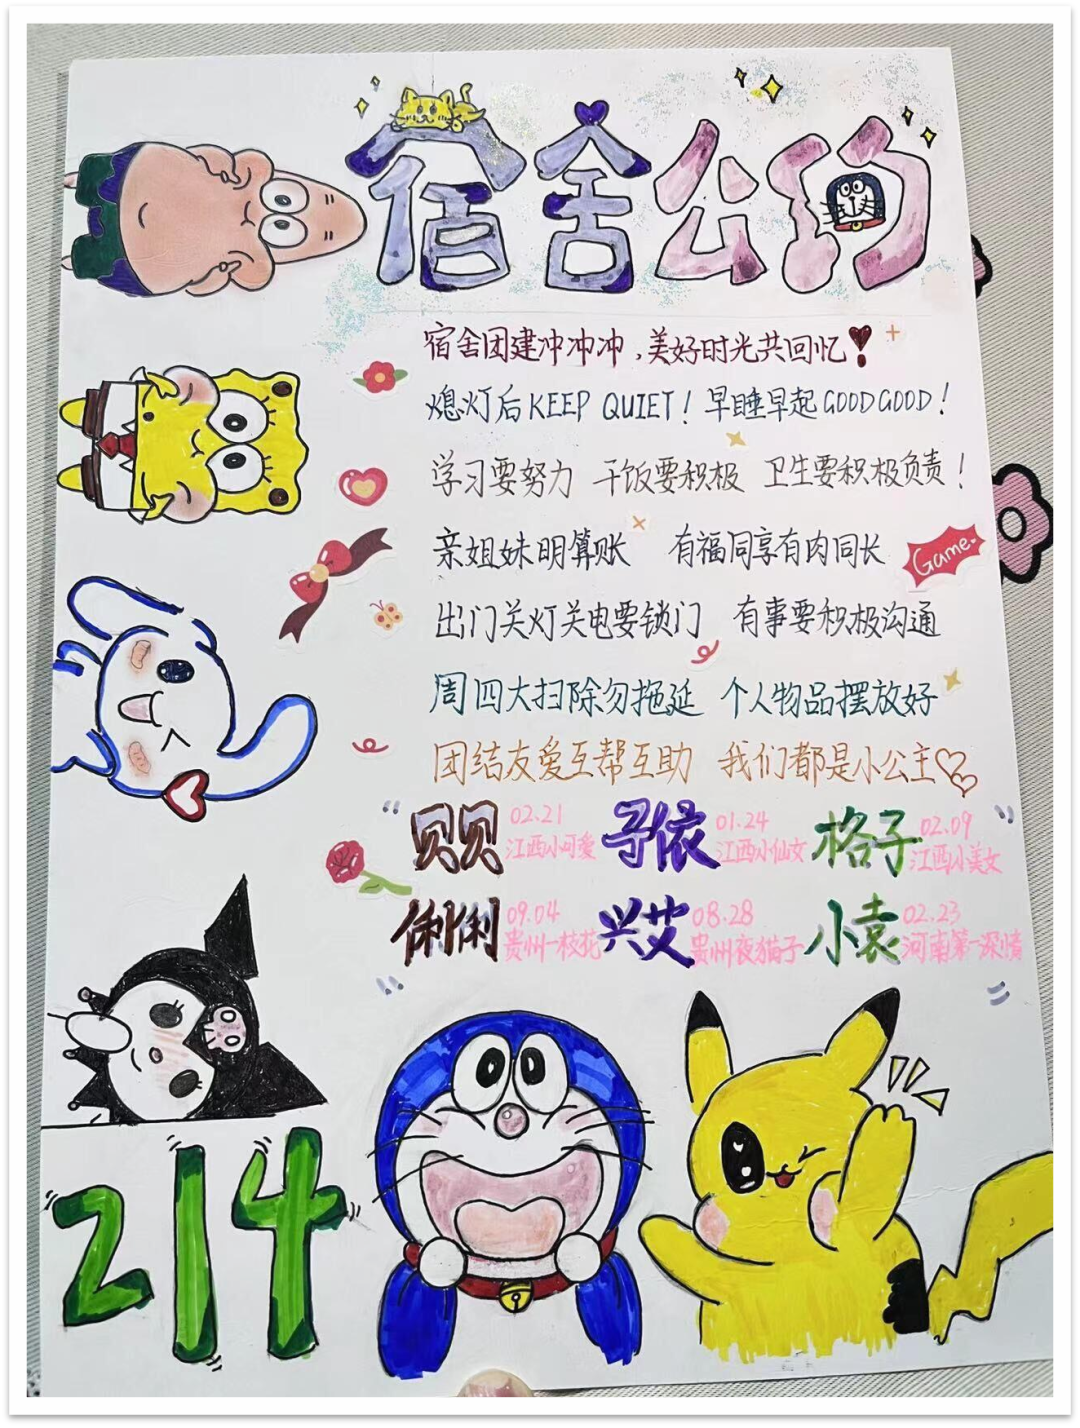 宿舍公约
宿舍团建冲冲冲，美好时光共回忆！
熄灯后KEEP QUIET！早睡早起GOODGOOD！
学习要努力 干饭要积极 卫生要积极负责！
亲姐妹明算账 有福同享有肉同长
Game
出门关灯关电要锁门 有事要积极沟通
周四大扫除勿拖延 个人物品摆放好
团结友爱互帮互助 我们都是小公主
贝贝 02.21 江西小可爱 予依 01.24 江西小仙女 格子 02.09 江西小美女
俐俐 09.04 贵州一枝花 兴艾 08.28 贵州夜猫子 小袁 02.23 河南第一深情
214